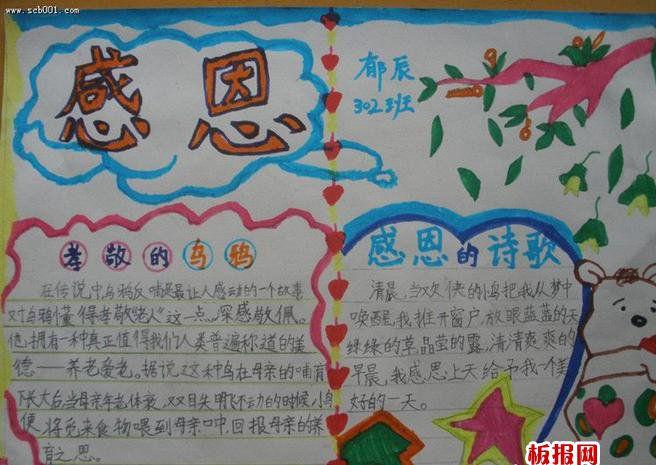 www.scb001.com
感恩
郁辰
302班
孝敬的乌鸦
在传说中乌鸦反哺是最让人感动的一个故事
对乌鸦懂得孝敬老人"这一点,深感敬佩。
他拥有一种真正值得我们人类普遍称道的美
德——养老爱老。据说这种鸟在母亲的哺育
下长大后当母亲年老体衰,双目失明飞不动的时候,小鸟
便将觅来食物喂到母亲口中回报母亲的养
育之恩。
感恩的诗歌
清晨,当欢快的小鸟把我从梦中
唤醒,我推开窗户,放眼蓝蓝的天
绿绿的草晶莹的露,清清爽爽的
早晨,我感恩上天给予我一个美
好的一天。
板报网